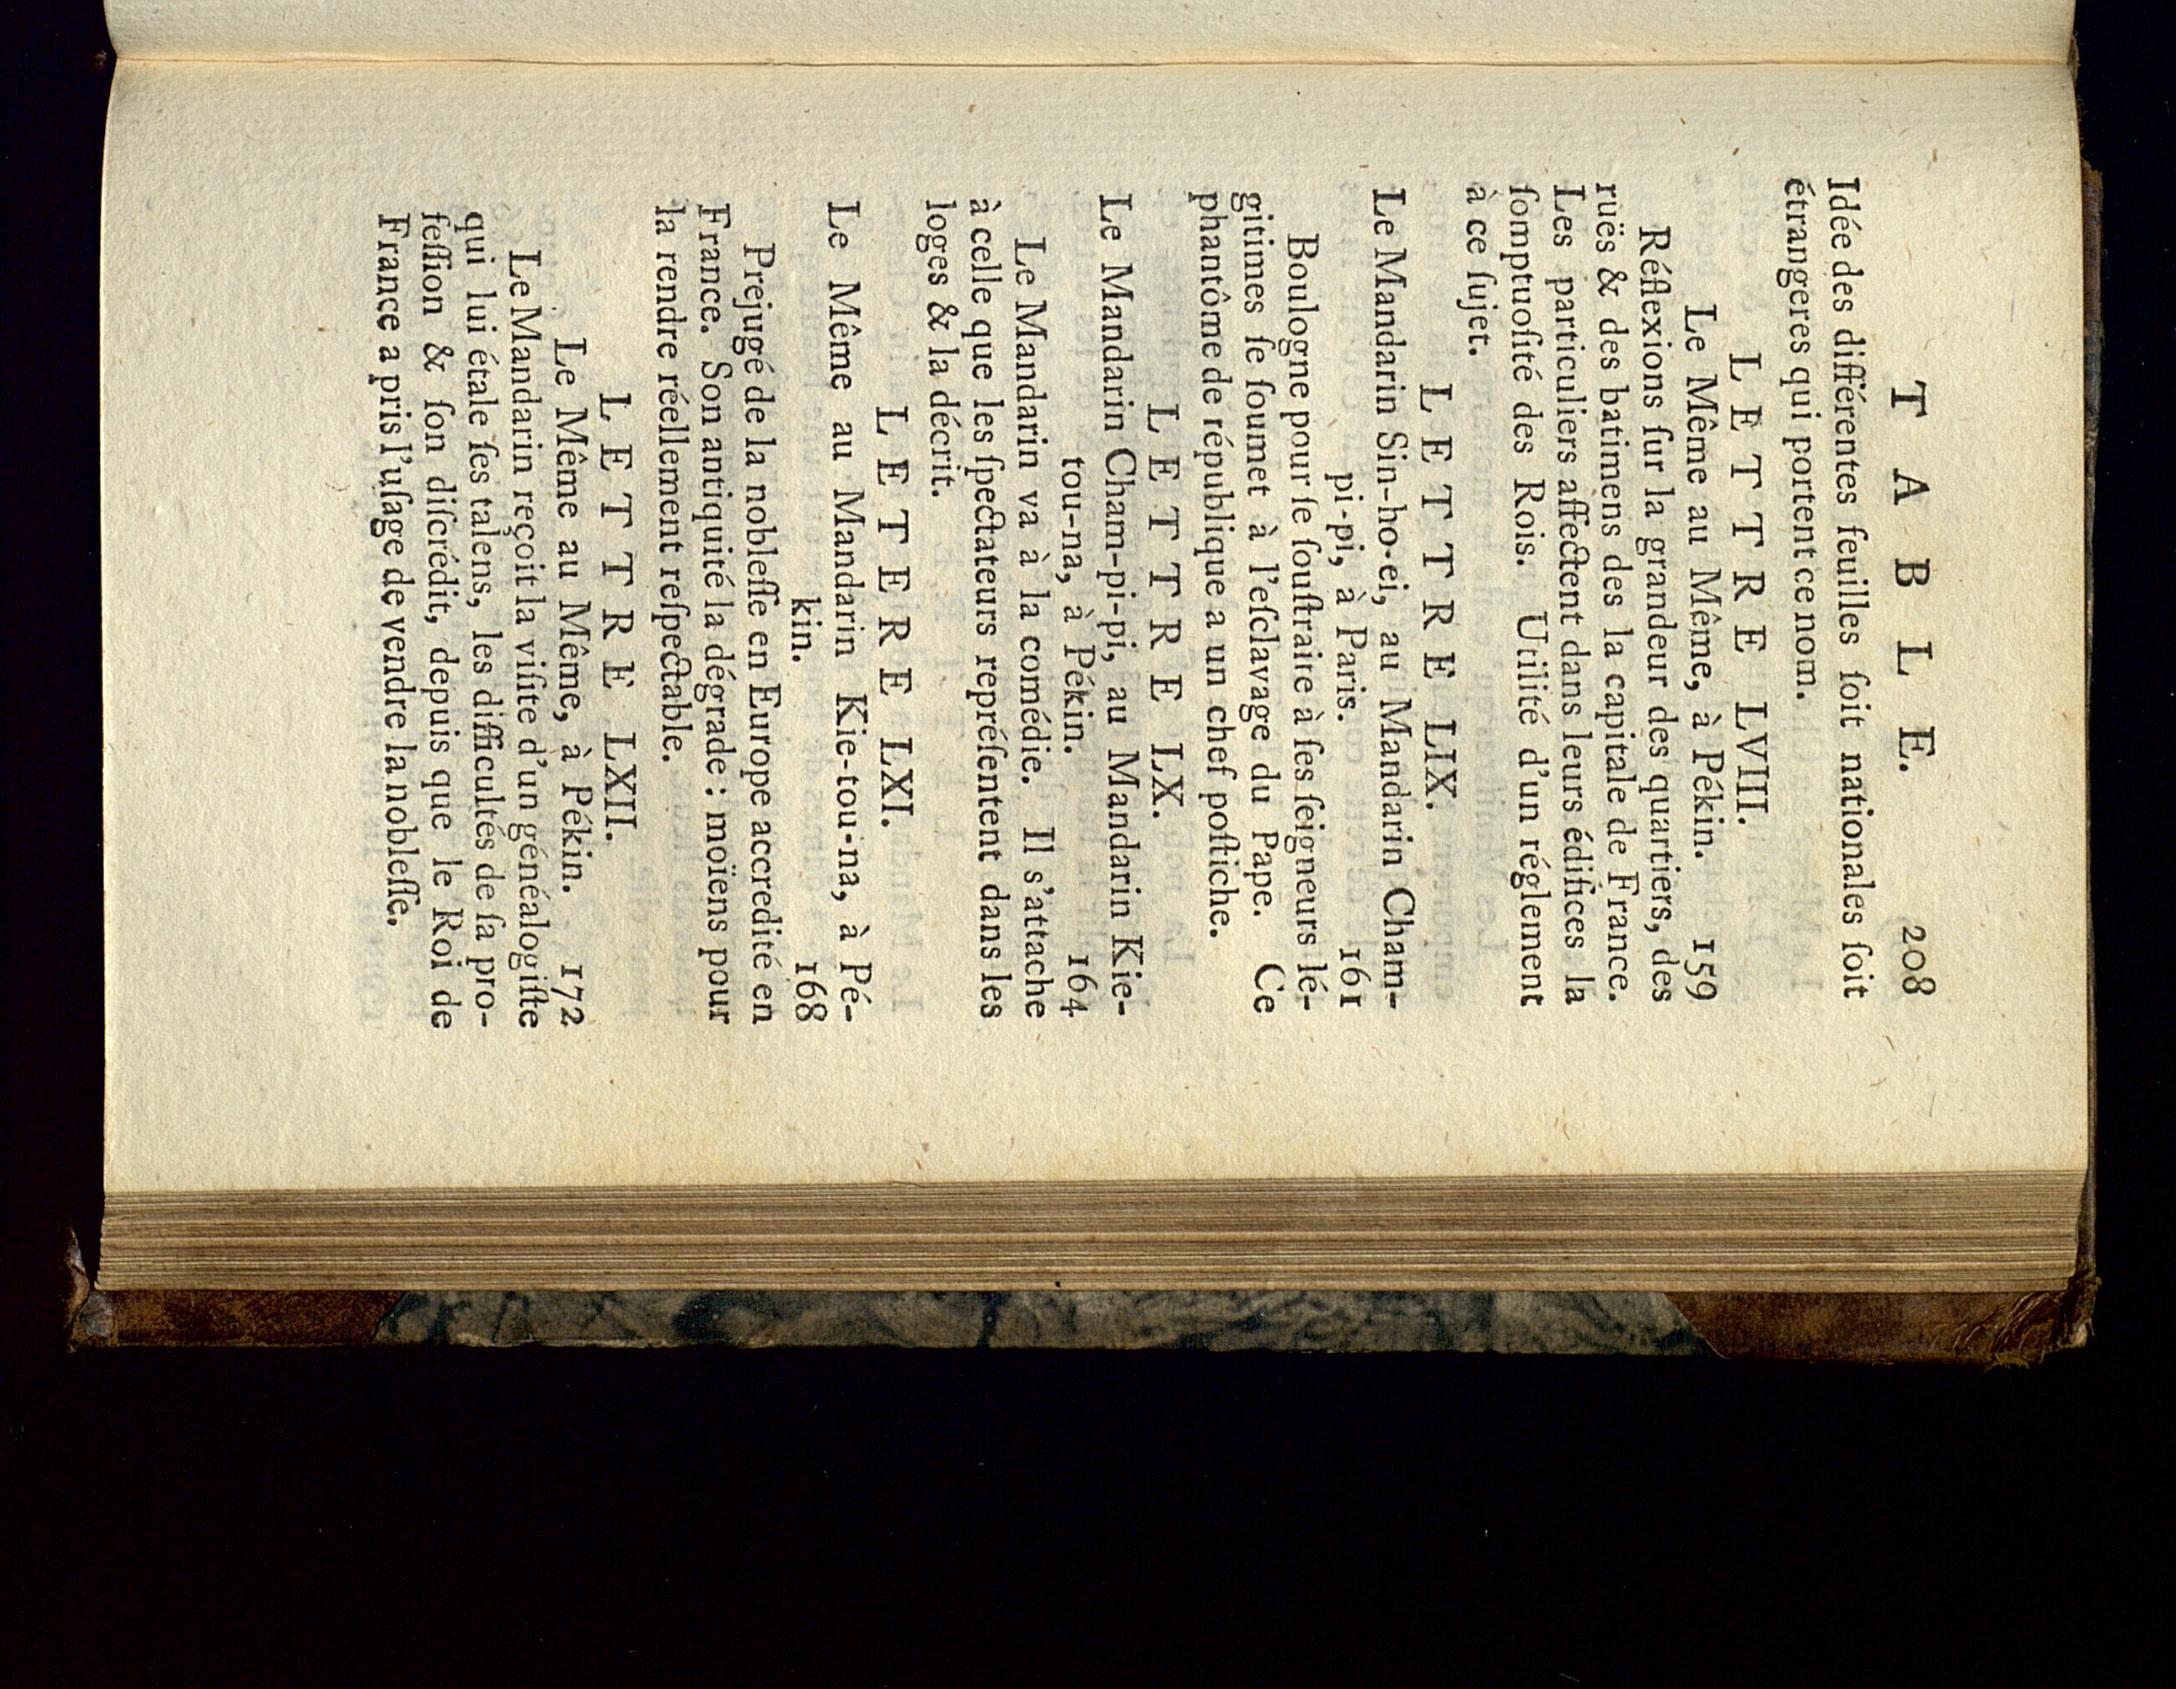 TABLE. 208
Idée des différentes feuilles ſoit nationales ſoit
étrangeres qui portent ce nom.
LETTRE LVIII.
Le Même au Même, à Pékin. 159
Réflexions ſur la grandeur des quartiers, des
ruës & des batimens des la capitale de France.
Les particuliers affectent dans leurs édifices la
ſomptuoſité des Rois. Utilité d'un réglement
à ce ſujet.
LETTRE LIX.
Le Mandarin Sin-ho-ei, au Mandarin Cham-
pi-pi, à Paris. 161
Boulogne pour ſe ſouſtraire à ſes ſeigneurs lé-
gitimes ſe ſoumet à l'eſclavage du Pape. Ce
phantôme de république a un chef poſtiche.
LETTRE LX.
Le Mandarin Cham-pi-pi, au Mandarin Kie-
tou-na, à Pékin. 164
Le Mandarin va à la comédie. Il s'attache
à celle que les ſpectateurs repréſentent dans les
loges & la décrit.
LETERE LXI.
Le Même au Mandarin Kie-tou-na, à Pé-
kin. 168
Prejugé de la nobleſſe en Europe accredité en
France. Son antiquité la dégrade : moïens pour
la rendre réellement reſpectable.
LETTRE LXII.
Le Même au Même, à Pékin. 172
Le Mandarin reçoit la viſite d'un généalogiſte
qui lui étale ſes talens, les difficultés de ſa pro-
feſſion & ſon diſcrédit, depuis que le Roi de
France a pris l'uſage de vendre la nobleſſe.